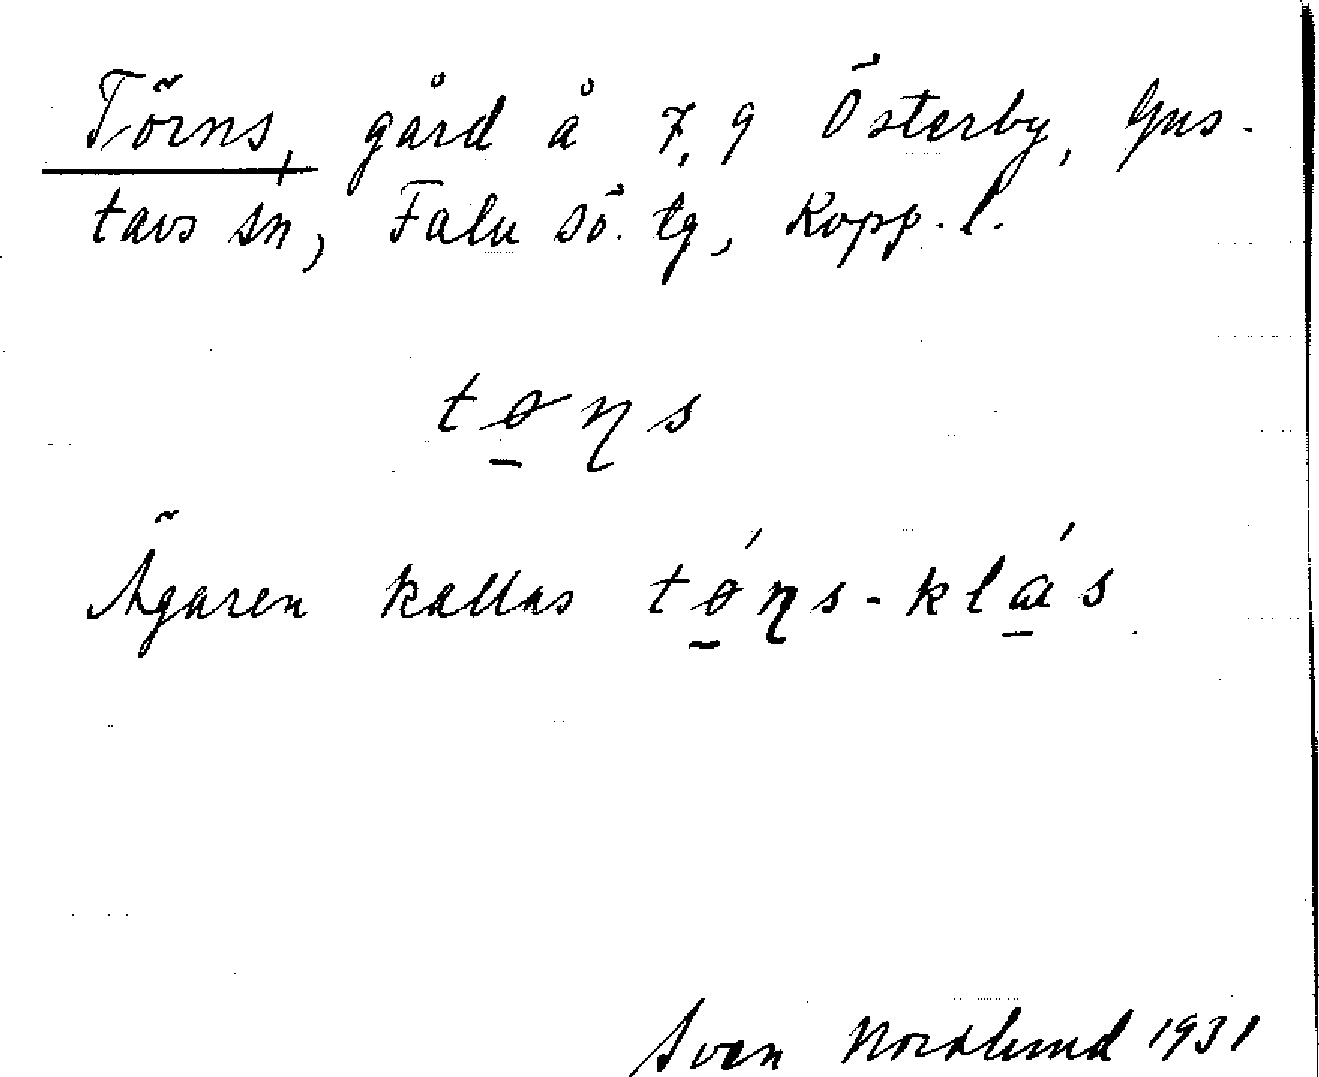 Törns, gård å 7, 9 Österby, Gus-
tavs sn, Falu sö. tg, Kopp. l.
tø̱ɳs
Ägaren kallas tǿ̱ɳs-klá̱s
Sven Nordlund 1931